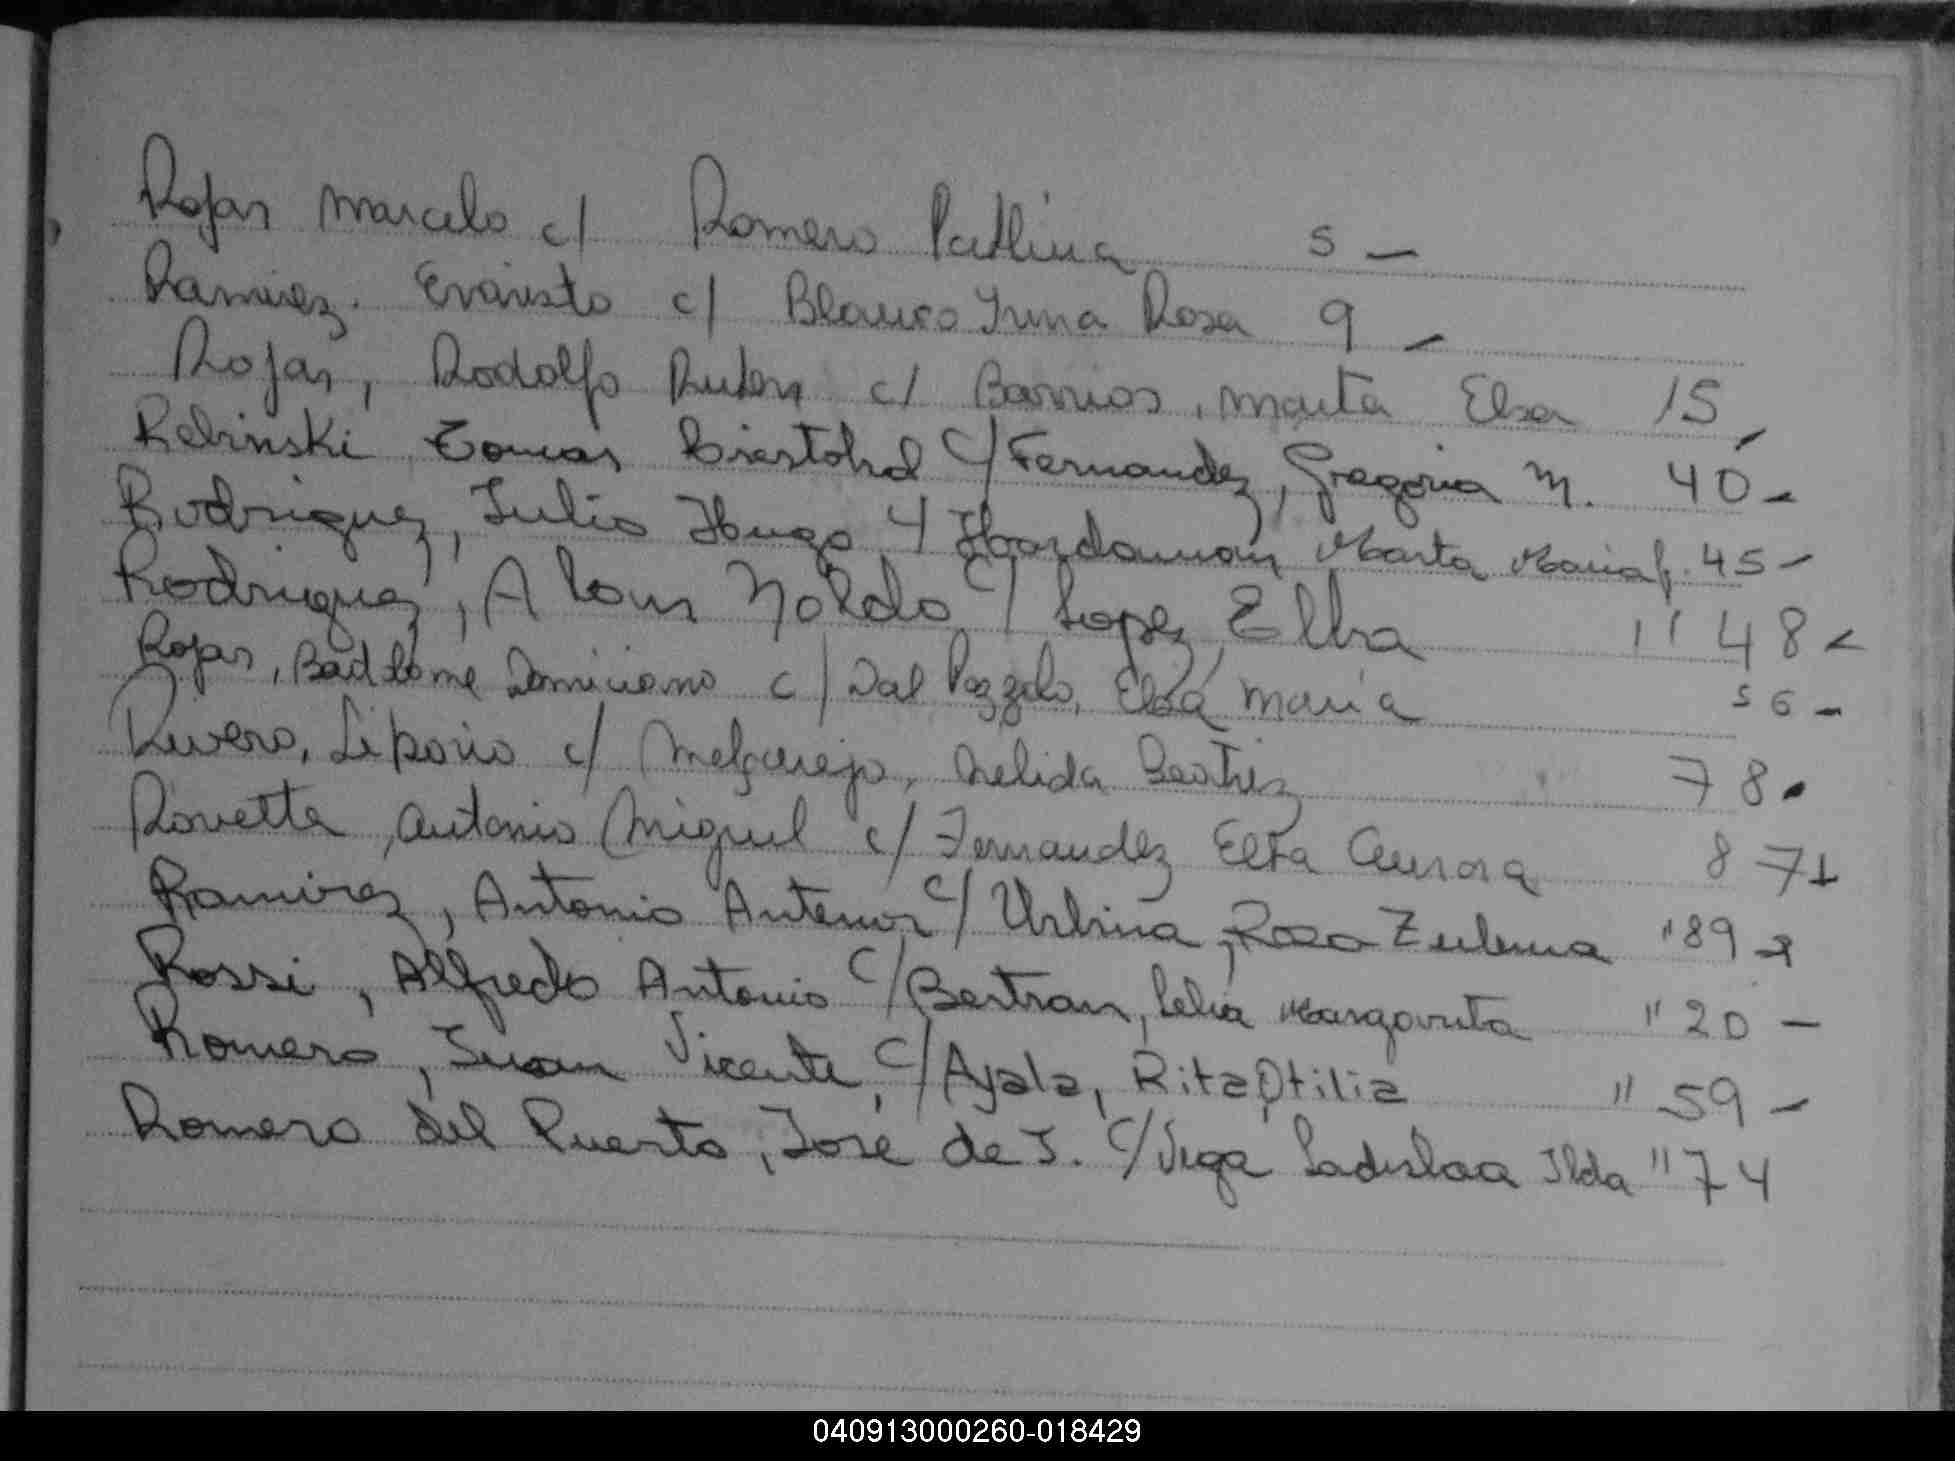 Rojas Marcelo c/ Romero 5 -
Ramirez. Evaristo c/ Blanco Irma Rosa 9 -
Rojas, Rodolfo Ruben c/ Barrios, Marta Elsa 15 -
Rebinski Tomas c/ Fernandez, Gregoria M. 40 -
Rodriguez, Julio Hugo c/ Marta Maria 45 -
Rodriguez, c/ Lopez, Elba " 48 -
Rojas, Domiciano c/ Dal Pozzolo, Elsa Maria 56 -
Rivero, Liborio c/ Melgarejo, Nelida Beatriz 78 -
Rovetta, Antonio Miguel c/ Fernandez Elba Aurora 87
Ramirez, Antonio Antenor c/ Urbina, Rosa Zulema " 89
Rossi, Alfredo Antonio c/ Bertran, Lelia Margarita " 20 -
Romero, Juan Vicente, c/ Ayala, Rita Otilia " 59 -
Romero del Puerto, José de J. c/ Vega Ladislaa Ilda " 74
040913000260-018429